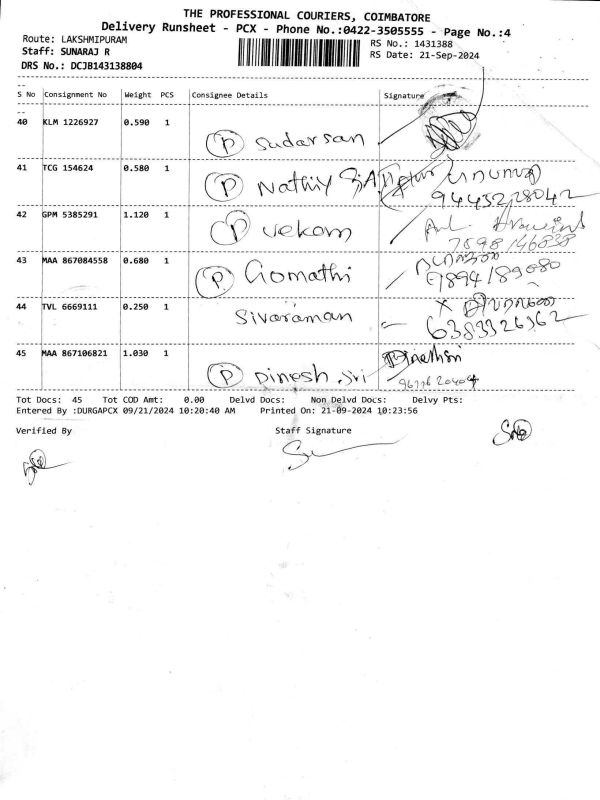 THE PROFESSIONAL COURIERS, COIMBATORE
Delivery Runsheet - PCX - Phone No.:0422-3505555 - Page No.:4
Route: LAKSHMIPURAM
RS No.: 1431388
Staff: SUNARAJ R
RS Date: 21-Sep-2024
DRS No.: DCJB143138804
S No Consignment No Weight PCS Consignee Details Signature
40 KLM 1226927 0.590 1
P Sudarsan
41 TCG 154624 0.580 1
P Nathiy
9443228042
42 GPM 5385291 1.120 1
P vekam
7598146838
43 MAA 867084558 0.680 1
P Gomathi
9894189080
44 TVL 6669111 0.250 1
Sivaraman
6383326362
45 MAA 867106821 1.030 1 Dinethsri
P Dinesh .sri
Tot Docs: 45 Tot COD Amt: 0.00 Delvd Docs: Non Delvd Docs: Delvy Pts:
Entered By :DURGAPCX 09/21/2024 10:20:40 AM Printed On: 21-09-2024 10:23:56
Verified By Staff Signature